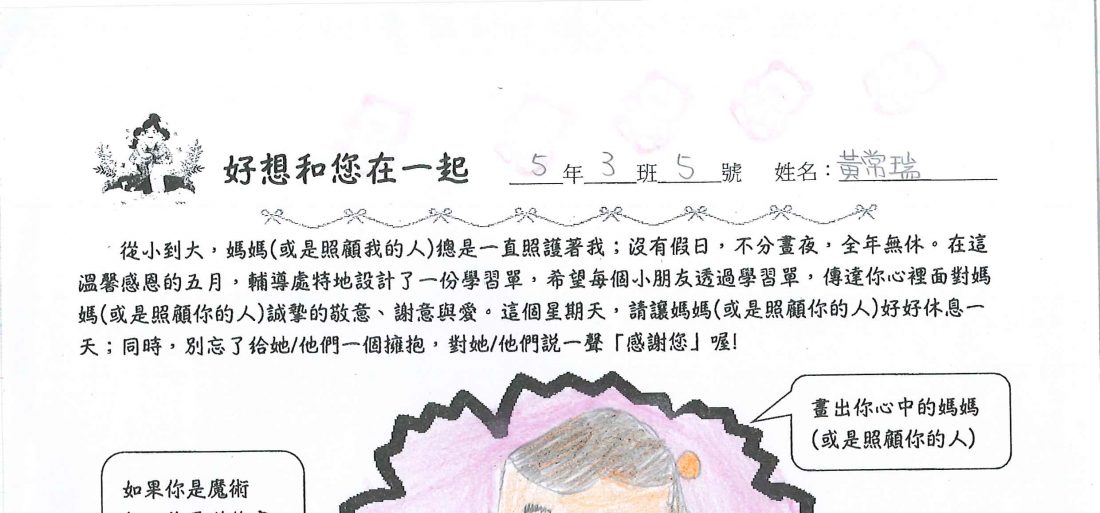 好想和您在一起 5年3班5號 姓名：黃常瑞
從小到大，媽媽(或是照顧我的人)總是一直照護著我；沒有假日，不分晝夜，全年無休。在這
溫馨感恩的五月，輔導處特地設計了一份學習單，希望每個小朋友透過學習單，傳達你心裡面對媽
媽(或是照顧你的人)誠摯的敬意、謝意與愛。這個星期天，請讓媽媽(或是照顧你的人)好好休息一
天；同時，別忘了給她/他們一個擁抱，對她/他們說一聲「感謝您」喔！
畫出你心中的媽媽
(或是照顧你的人)
如果你是魔術